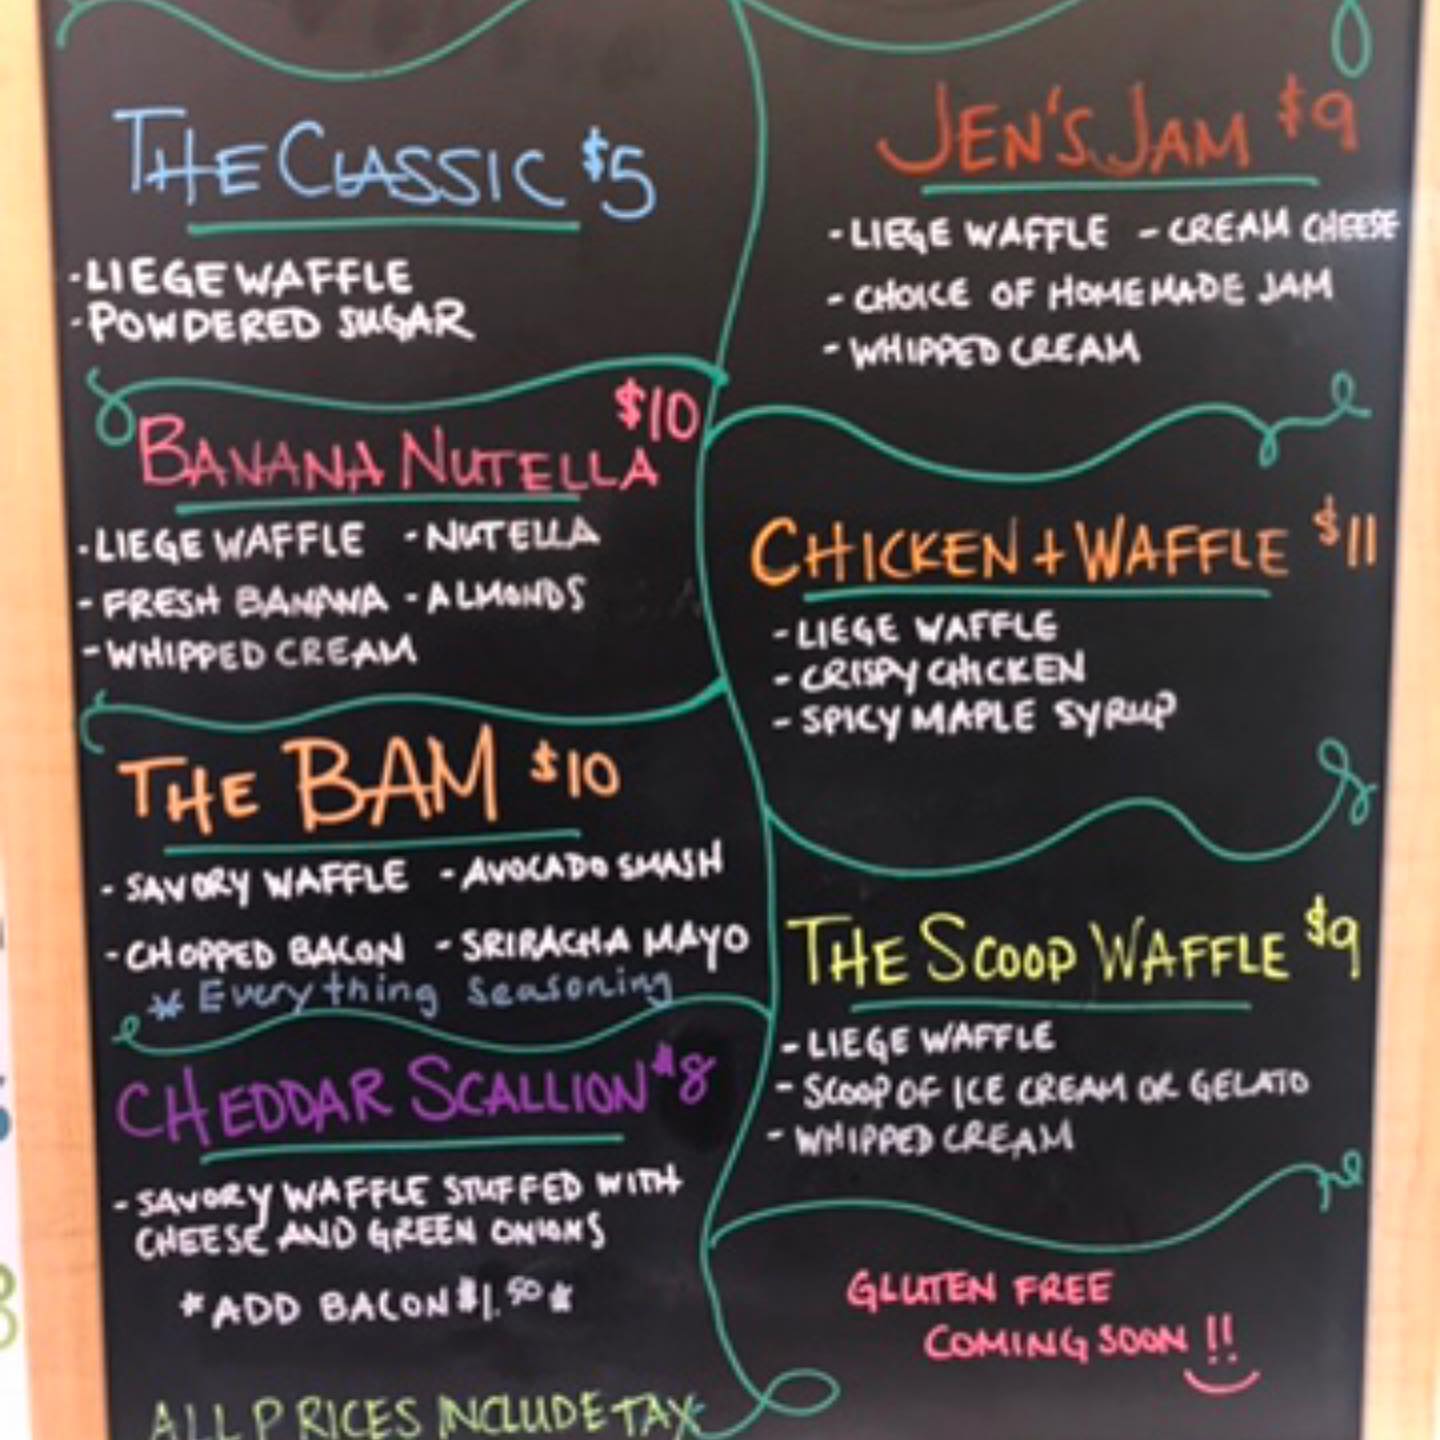 THE CLASSIC $5
-LIEGE WAFFLE
-POWDERED SUGAR
BANANA NUTELLA $10
-LIEGE WAFFLE -NUTELLA
-FRESH BANANA -ALMONDS
-WHIPPED CREAM
THE BAM $10
-SAVORY WAFFLE -AVOCADO SMASH
-CHOPPED BACON -SRIRACHA MAYO
* Everything seasoning
CHEDDAR SCALLION $8
-SAVORY WAFFLE STUFFED WITH
CHEESE AND GREEN ONIONS
*ADD BACON $1.50*
ALL PRICES INCLUDE TAX
JEN'S JAM $9
-LIEGE WAFFLE -CREAM CHEESE
-CHOICE OF HOMEMADE JAM
-WHIPPED CREAM
CHICKEN + WAFFLE $11
-LIEGE WAFFLE
-CRISPY CHICKEN
-SPICY MAPLE SYRUP
THE SCOOP WAFFLE $9
-LIEGE WAFFLE
-SCOOP OF ICE CREAM OR GELATO
-WHIPPED CREAM
GLUTEN FREE
COMING SOON !!